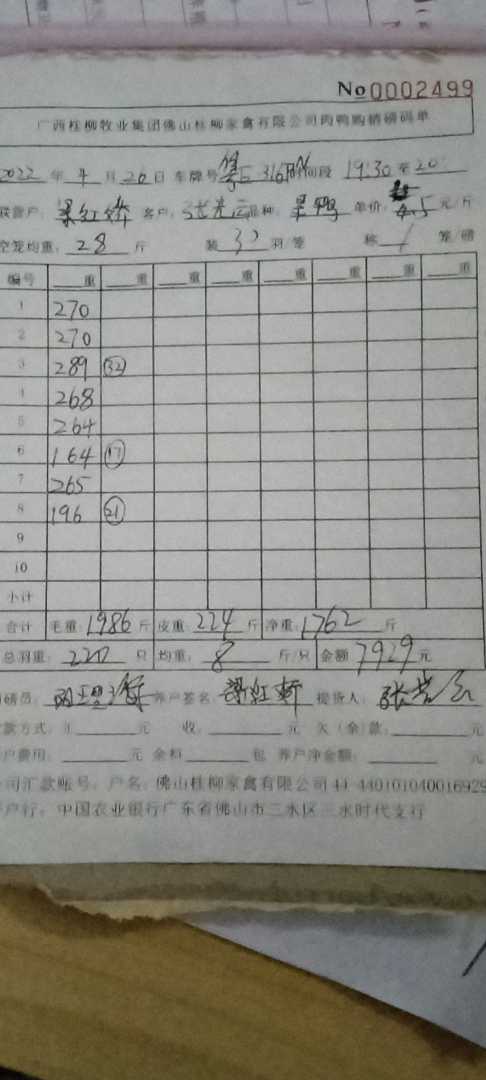 No 0002499
广西桂柳牧业集团佛山桂柳家禽有限公司肉鸭购销磅码单
2022 年 4 月 20 日 车牌号 316 时间段 19:30 至 20:
联营户: 梁红娇 客户: 张光云 品种: 单价: 4.5 元/斤
空笼均重: 28 斤 装 30 羽/笼 称 1 笼/磅
编号 重 重 重 重 重 重 重 重
1 270
2 270
3 289 32
4 268
5 264
6 164 17
7 265
8 196 21
9
10
小计
合计 毛重: 1986 斤 皮重: 224 斤 净重: 1762 斤
总羽重: 220 只 均重: 8 斤/只 金额 7929 元
磅员: 养户签名: 提货人:
款方式: 元 收: 元 欠(余)款: 元
户费用: 元 余料 包 养户净金额: 元
司汇款账号: 户名: 佛山桂柳家禽有限公司 44-440101040016929
户行: 中国农业银行广东省佛山市三水区三水时代支行